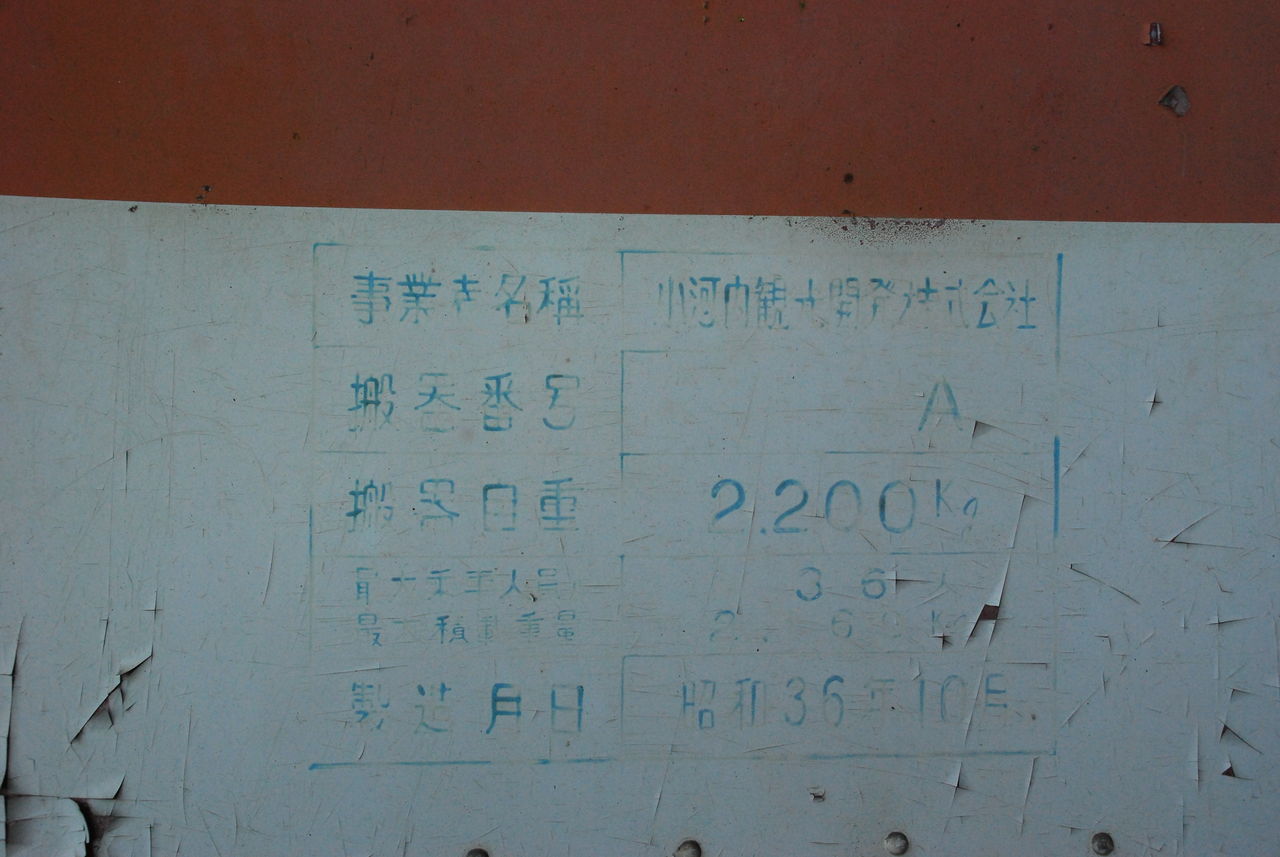 事業者名称 小河内観光開発株式会社
搬器番号 A
搬器自重 2.200Kg
最大乗車人員 36人
最大積載重量 Kg
製造月日 昭和36年10月